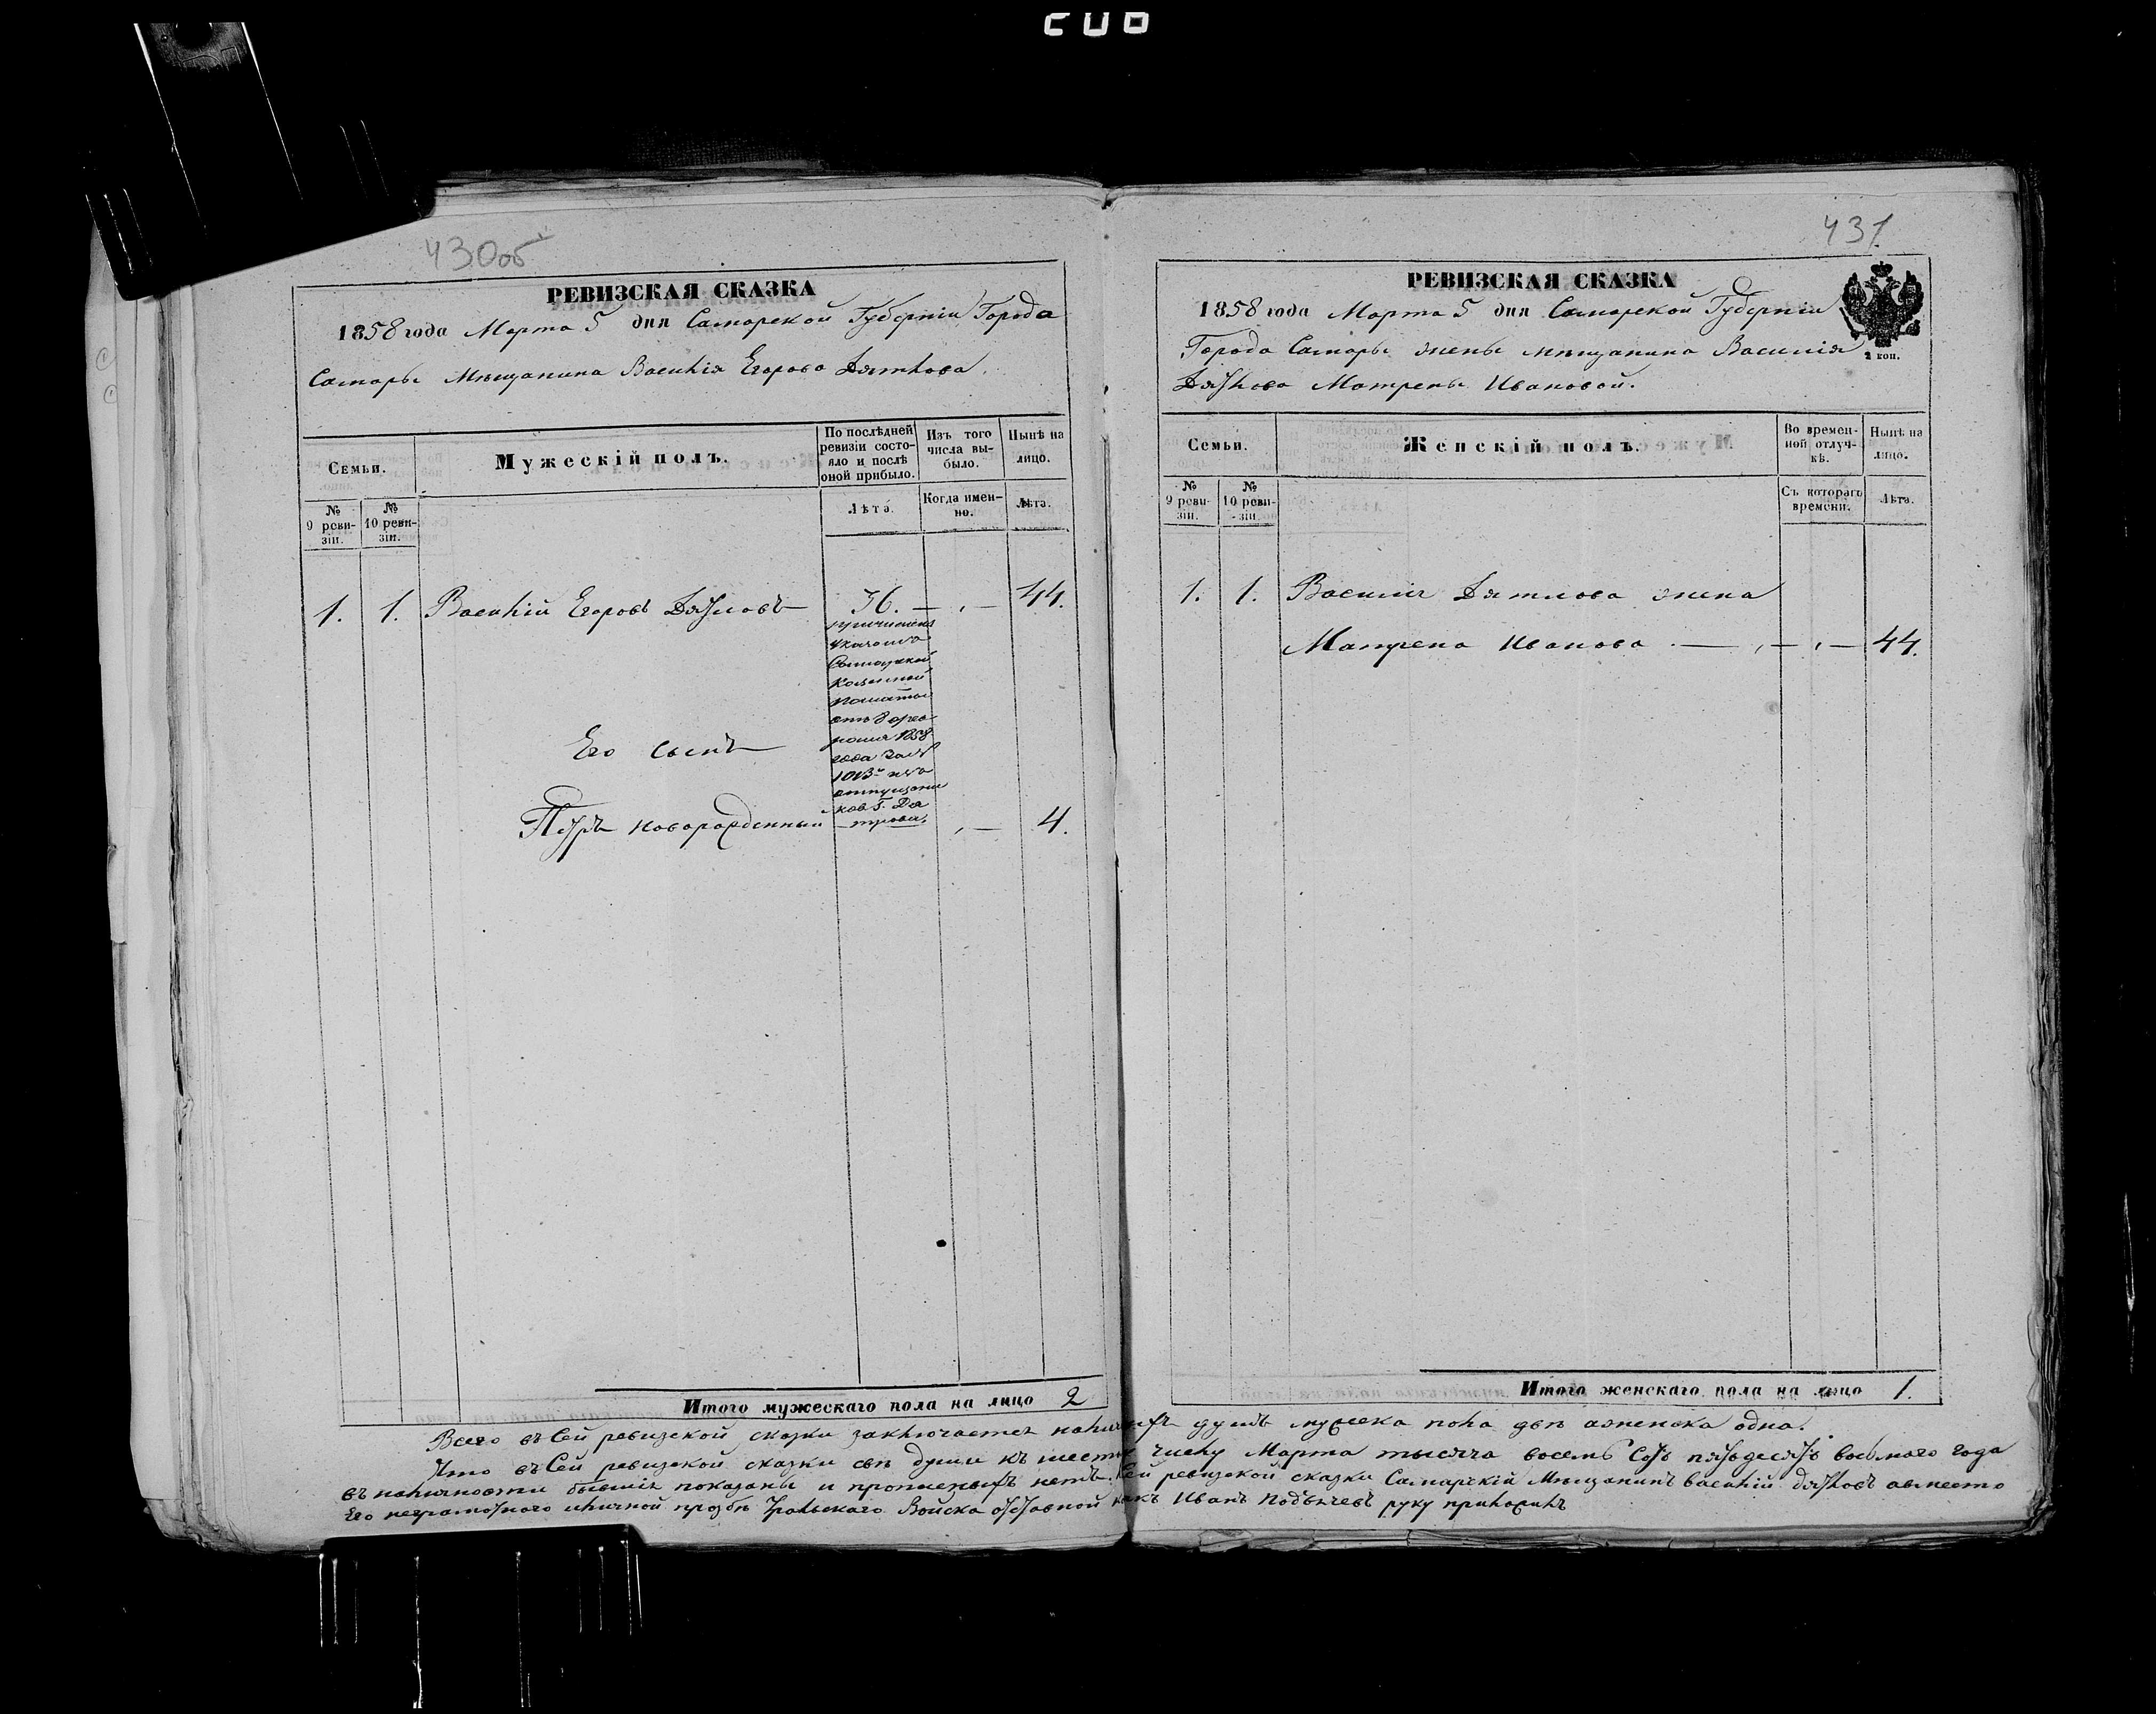 430об
РЕВИЗСКАЯ СКАЗКА
1858 года Марта 5 дня Самарской Губерніи Города
Самары Мѣщанина Василія Егорова Дятлова.
Семьи.
Мужескій полъ.
По послѣдней ревизіи состояло и послѣ оной прибыло.
Изъ того числа выбыло.
Нынѣ на лицо.
№ 9 ревизіи.
№ 10 ревизіи.
Лѣта.
Когда именно.
Лѣта.
1. 1. Василій Егоровъ Дятловъ 36. 44.
причисленъ
указомъ
Самарской
Казенной
Палаты
отъ 8 фев
раля 1858
года за №
1013
отпущени
ковъ Г.
Его сынъ
Петръ новорожденный 4.
Итого мужескаго пола на лицо 2
431
РЕВИЗСКАЯ СКАЗКА
2 коп.
1858 года Марта 5 дня Самарской Губерніи
Города Самары жены мѣщанина Василія
Дятлова Матрены Ивановой.
Семьи.
Женскій полъ.
Во временной отлучкѣ.
Нынѣ на лицо.
№ 9 ревизіи.
№ 10 ревизіи.
Съ котораго времени.
Лѣта.
1. 1. Василія Дятлова жена
Матрена Иванова 44.
Итого женскаго пола на лицо 1.
Всего въ Сей ревизской сказки заключается наличныхъ душъ мужска пола двѣ аженска одна.
Что въ Сей ревизской сказки свѣ души къ шестому числу Марта тысяча восемь Сотъ пятьдесятъ восьмого года
въ наличности бывшія показаны и пропшеныхъ нетъ, Сей ревизской сказки Самарскій Мѣщанинъ василій дятловъ авместо
Его неграмотного иличной прозбѣ Уральскаго Войска отставной Иванъ руку приложилъ